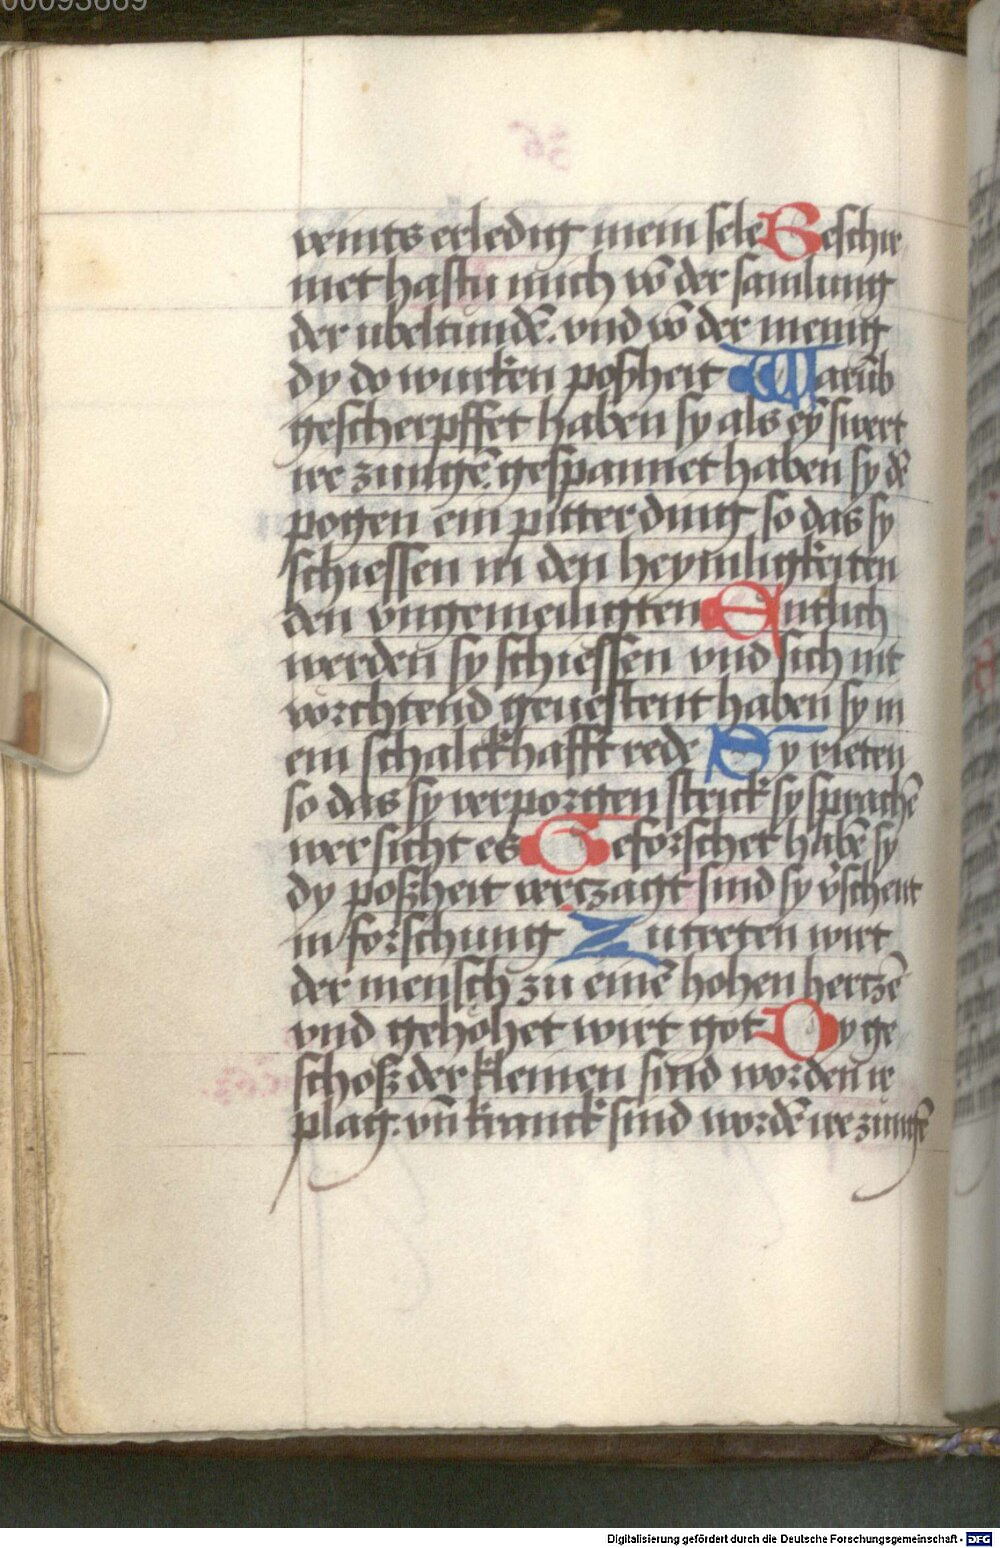 00093669
veints erledig mein sele Beschir
met hastu mich võ der samlung
der ubeltundẽ. vnd võ der menig
dy do wurkẽn poßheit Warũb
gescherpffet haben sy als eỹ swert
ire zungẽ. gespannet haben sy dẽ
pogen ein pitter ding so das sy
schiessen in den heymligkeiten
den vngemeiligten Entlich
werden sy schiessen vnd sich nit
vorchtend geuestent haben sy in
ein schalckhafft rede Sy rieten
so das sy verporgen strick sy sprachẽ
wer sicht es Geforschet habẽ sy
dy poßheit verczagt sind sy
in forschung Zutreten wirt
der mensch zu einẽ hohen hertzẽ
vnd gehöhet wirt got Dy ge
schoß der kleinen sind worden ir
plag. vñ kranck sind wordẽ ire zungẽ
Digitalisierung gefördert durch die Deutsche Forschungsgemeinschaft - DFG